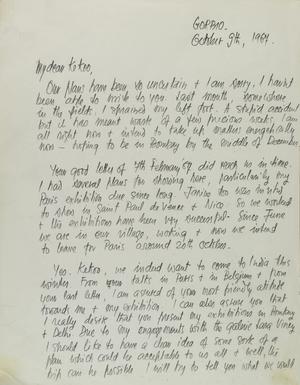 GORBIO.
October 9th, 1967.
My dear Kekoo,
Our plans have been so uncertain + I am sorry, I havn't
been able to write to you. Last month, somewhere
in the fields, I sprained my left foot. A stupid accident
but it has meant waste of a few precious weeks. I am
all right now + intend to take up matters energetically
now - hoping to be in Bombay by the middle of December.
Your good letter of 7th February 67 did reach us in time.
I had several plans for showing here, particularly my
Paris exhibition due since long. Janine too was invited
to show in Saint Paul de Vence + Nice. So we worked
+ the exhibitions have been very successful. Since June
we are in our village, working + now we intend
to leave for Paris around 20th october.
Yes, Kekoo, we indeed want to come to India this
winter. From your talks in Paris + in Belgium + from
your last letter, I am assured of your most friendly attitude
towards me + my exhibition. I can also assure you that
I really desire that you present my exhibitions in Bombay
+ Delhi. Due to my engagements with the galerie Lara Vincy
I should like to have a clear idea of some sort of a
plan which could be acceptable to us all + well, the
trip can be possible. I will try to tell you what we would